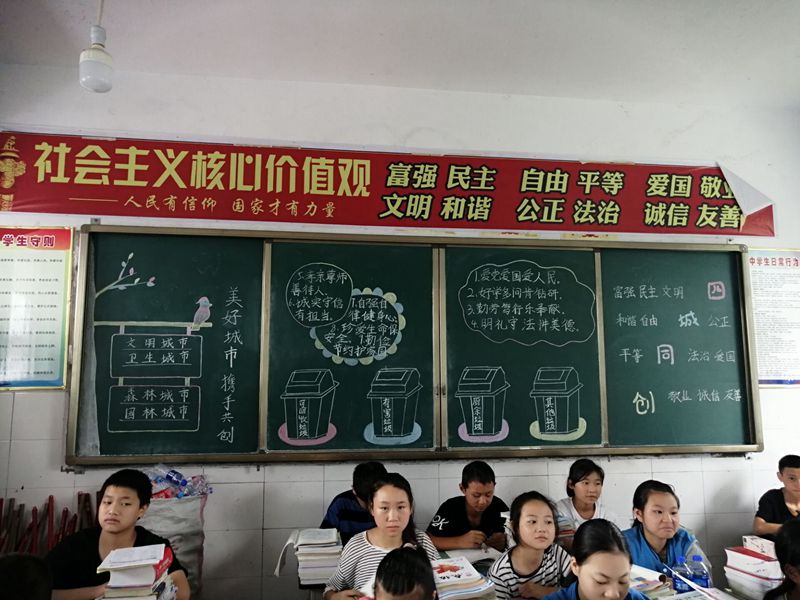 社会主义核心价值观
人民有信仰 国家才有力量
富强 民主 自由 平等 爱国 敬业
文明 和谐 公正 法治 诚信 友善
学生守则
文明城市
卫生城市
森林城市
园林城市
美好城市携手共创
5.孝亲尊师
善待人
6.诚实守信
有担当
7.自强自
律健身心
8.珍爱生命保
安全 9.勤俭
节约护家园
可回收垃圾
有害垃圾
1.爱党爱国爱人民.
2.好学多问肯钻研.
3.勤劳笃行乐奉献.
4.明礼守法讲美德.
厨余垃圾
其他垃圾
富强 民主 文明 四
和谐 自由 城 公正
平等 同 法治 爱国
创 敬业 诚信 友善
中学生日常行